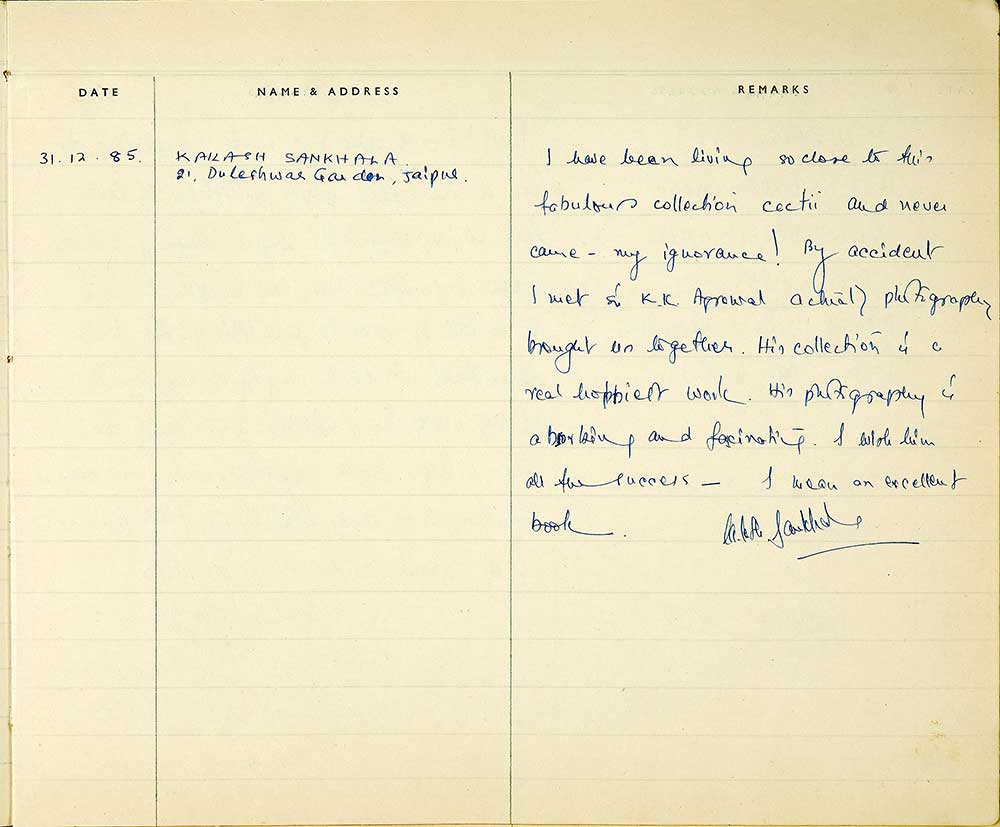 DATE
NAME & ADDRESS
REMARKS
31.12.85.
KAILASH SANKHALA.
21, Duleshwar Garden, Jaipur.
I have been living so close to this
fabulous collection cactii and never
came - my ignorance! By accident
I met K.K. Agrawal actually photography
brought us together. His collection is a
real work. His photography is
and fascinating. I wish him
all the success — I mean an excellent
book.
Sankhala